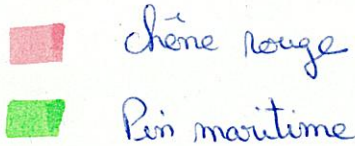 chêne rouge
Pin maritime